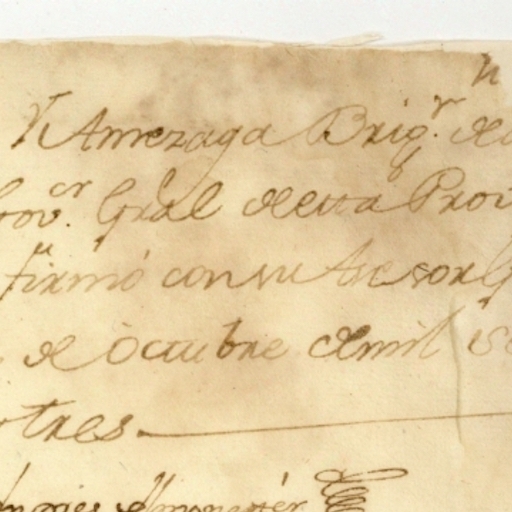 Y Amezaga Brigr. de
Govor. Gral desta Prov
firmó con su Asesor G
de Octubre de mil se
tres.
Almonester